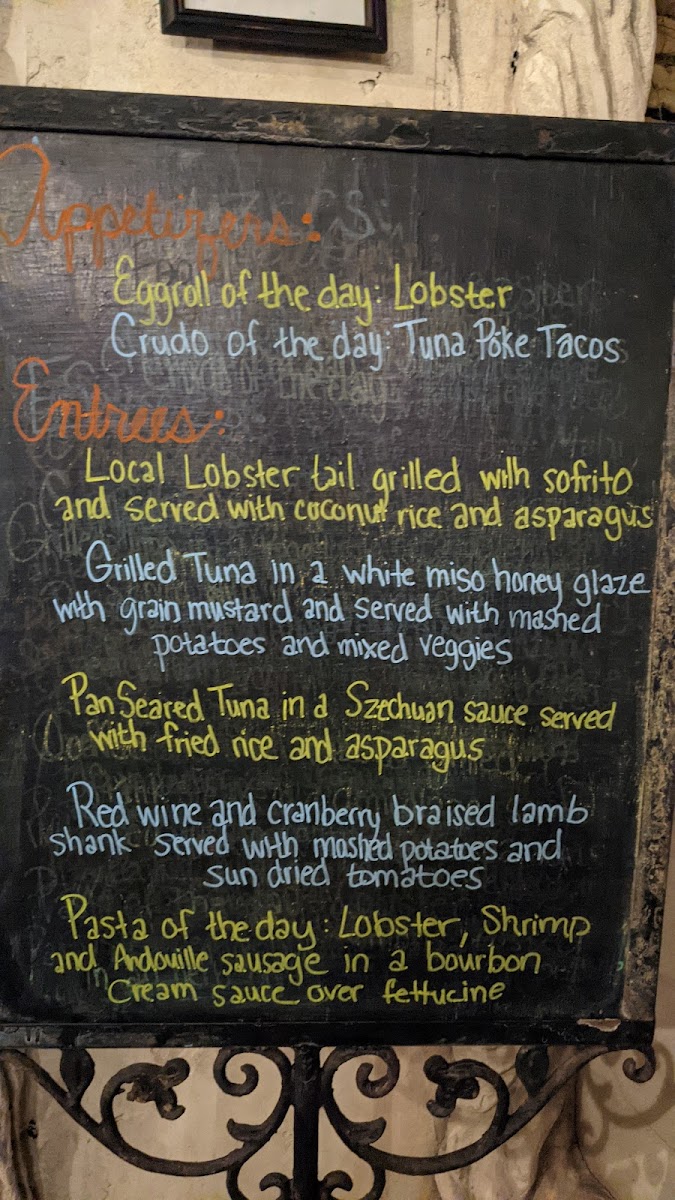 Appetizers:
Eggroll of the day: Lobster
Crudo of the day: Tuna Poke Tacos
Entrees:
Local Lobster tail grilled with sofrito
and served with coconut rice and asparagus
Grilled Tuna in a white miso honey glaze
with grain mustard and served with mashed
potatoes and mixed veggies
Pan Seared Tuna in a Szechuan sauce served
with fried rice and asparagus
Red wine and cranberry braised lamb
shank served with mashed potatoes and
sun dried tomatoes
Pasta of the day: Lobster, Shrimp
and Andouille sausage in a bourbon
Cream sauce over fettucine